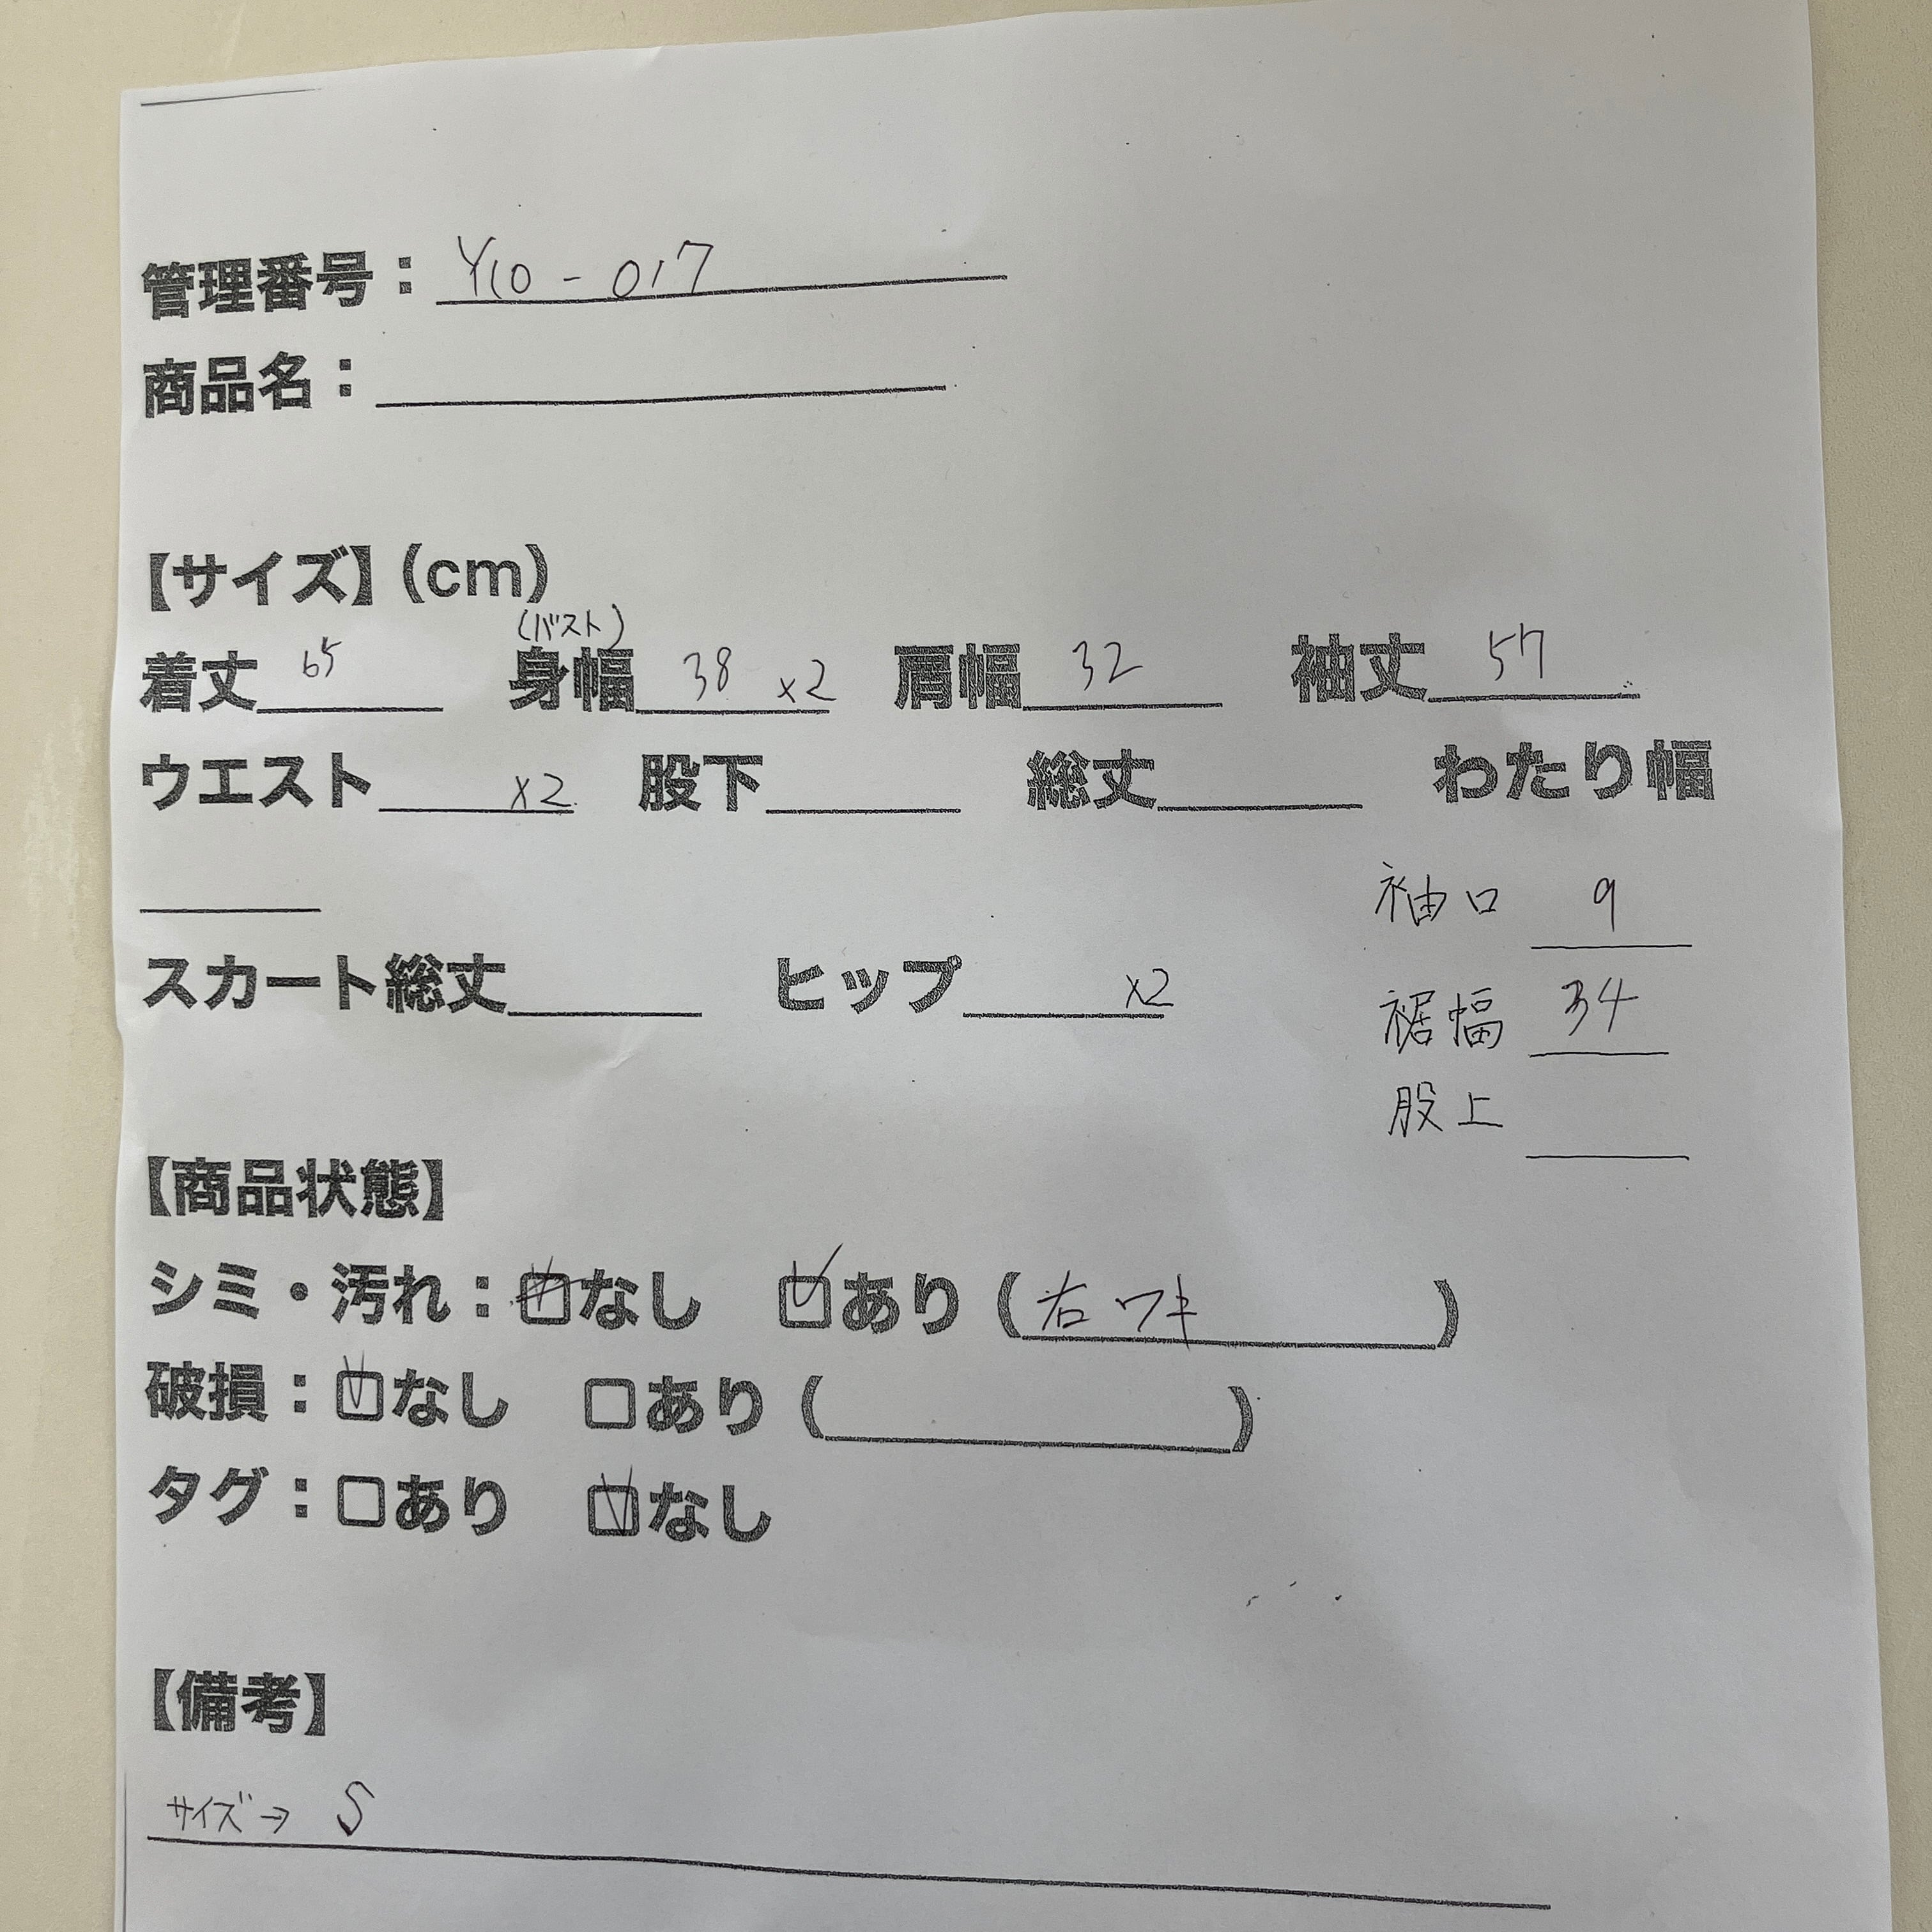 管理番号：Y10-017
商品名：
【サイズ】(cm)
(バスト)
着丈 65 身幅 38 ×2 肩幅 32 袖丈 57
ウエスト ×2 股下 総丈 わたり幅
袖口 9
スカート総丈 ヒップ ×2
裾幅 34
股上
【商品状態】
シミ・汚れ：☑なし ☑あり（右ワキ）
破損：☑なし □あり（ ）
タグ：□あり ☑なし
【備考】
サイズ→ S